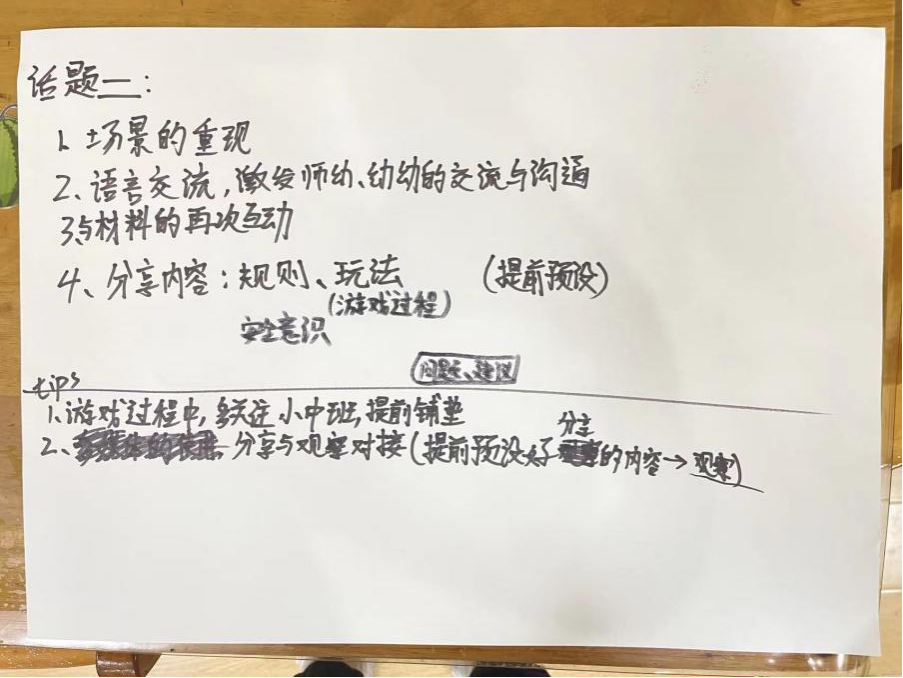 话题二:
1、场景的重现
2、语言交流,激发师幼、幼幼的交流与沟通
3、与材料的再次互动
4、分享内容:规则、玩法 (提前预设)
(游戏过程)
安全意识
问题、建议
tips
1、游戏过程中,多关注小中班,提前铺垫
2、分享与观察对接(提前预设好分享的内容→观察)